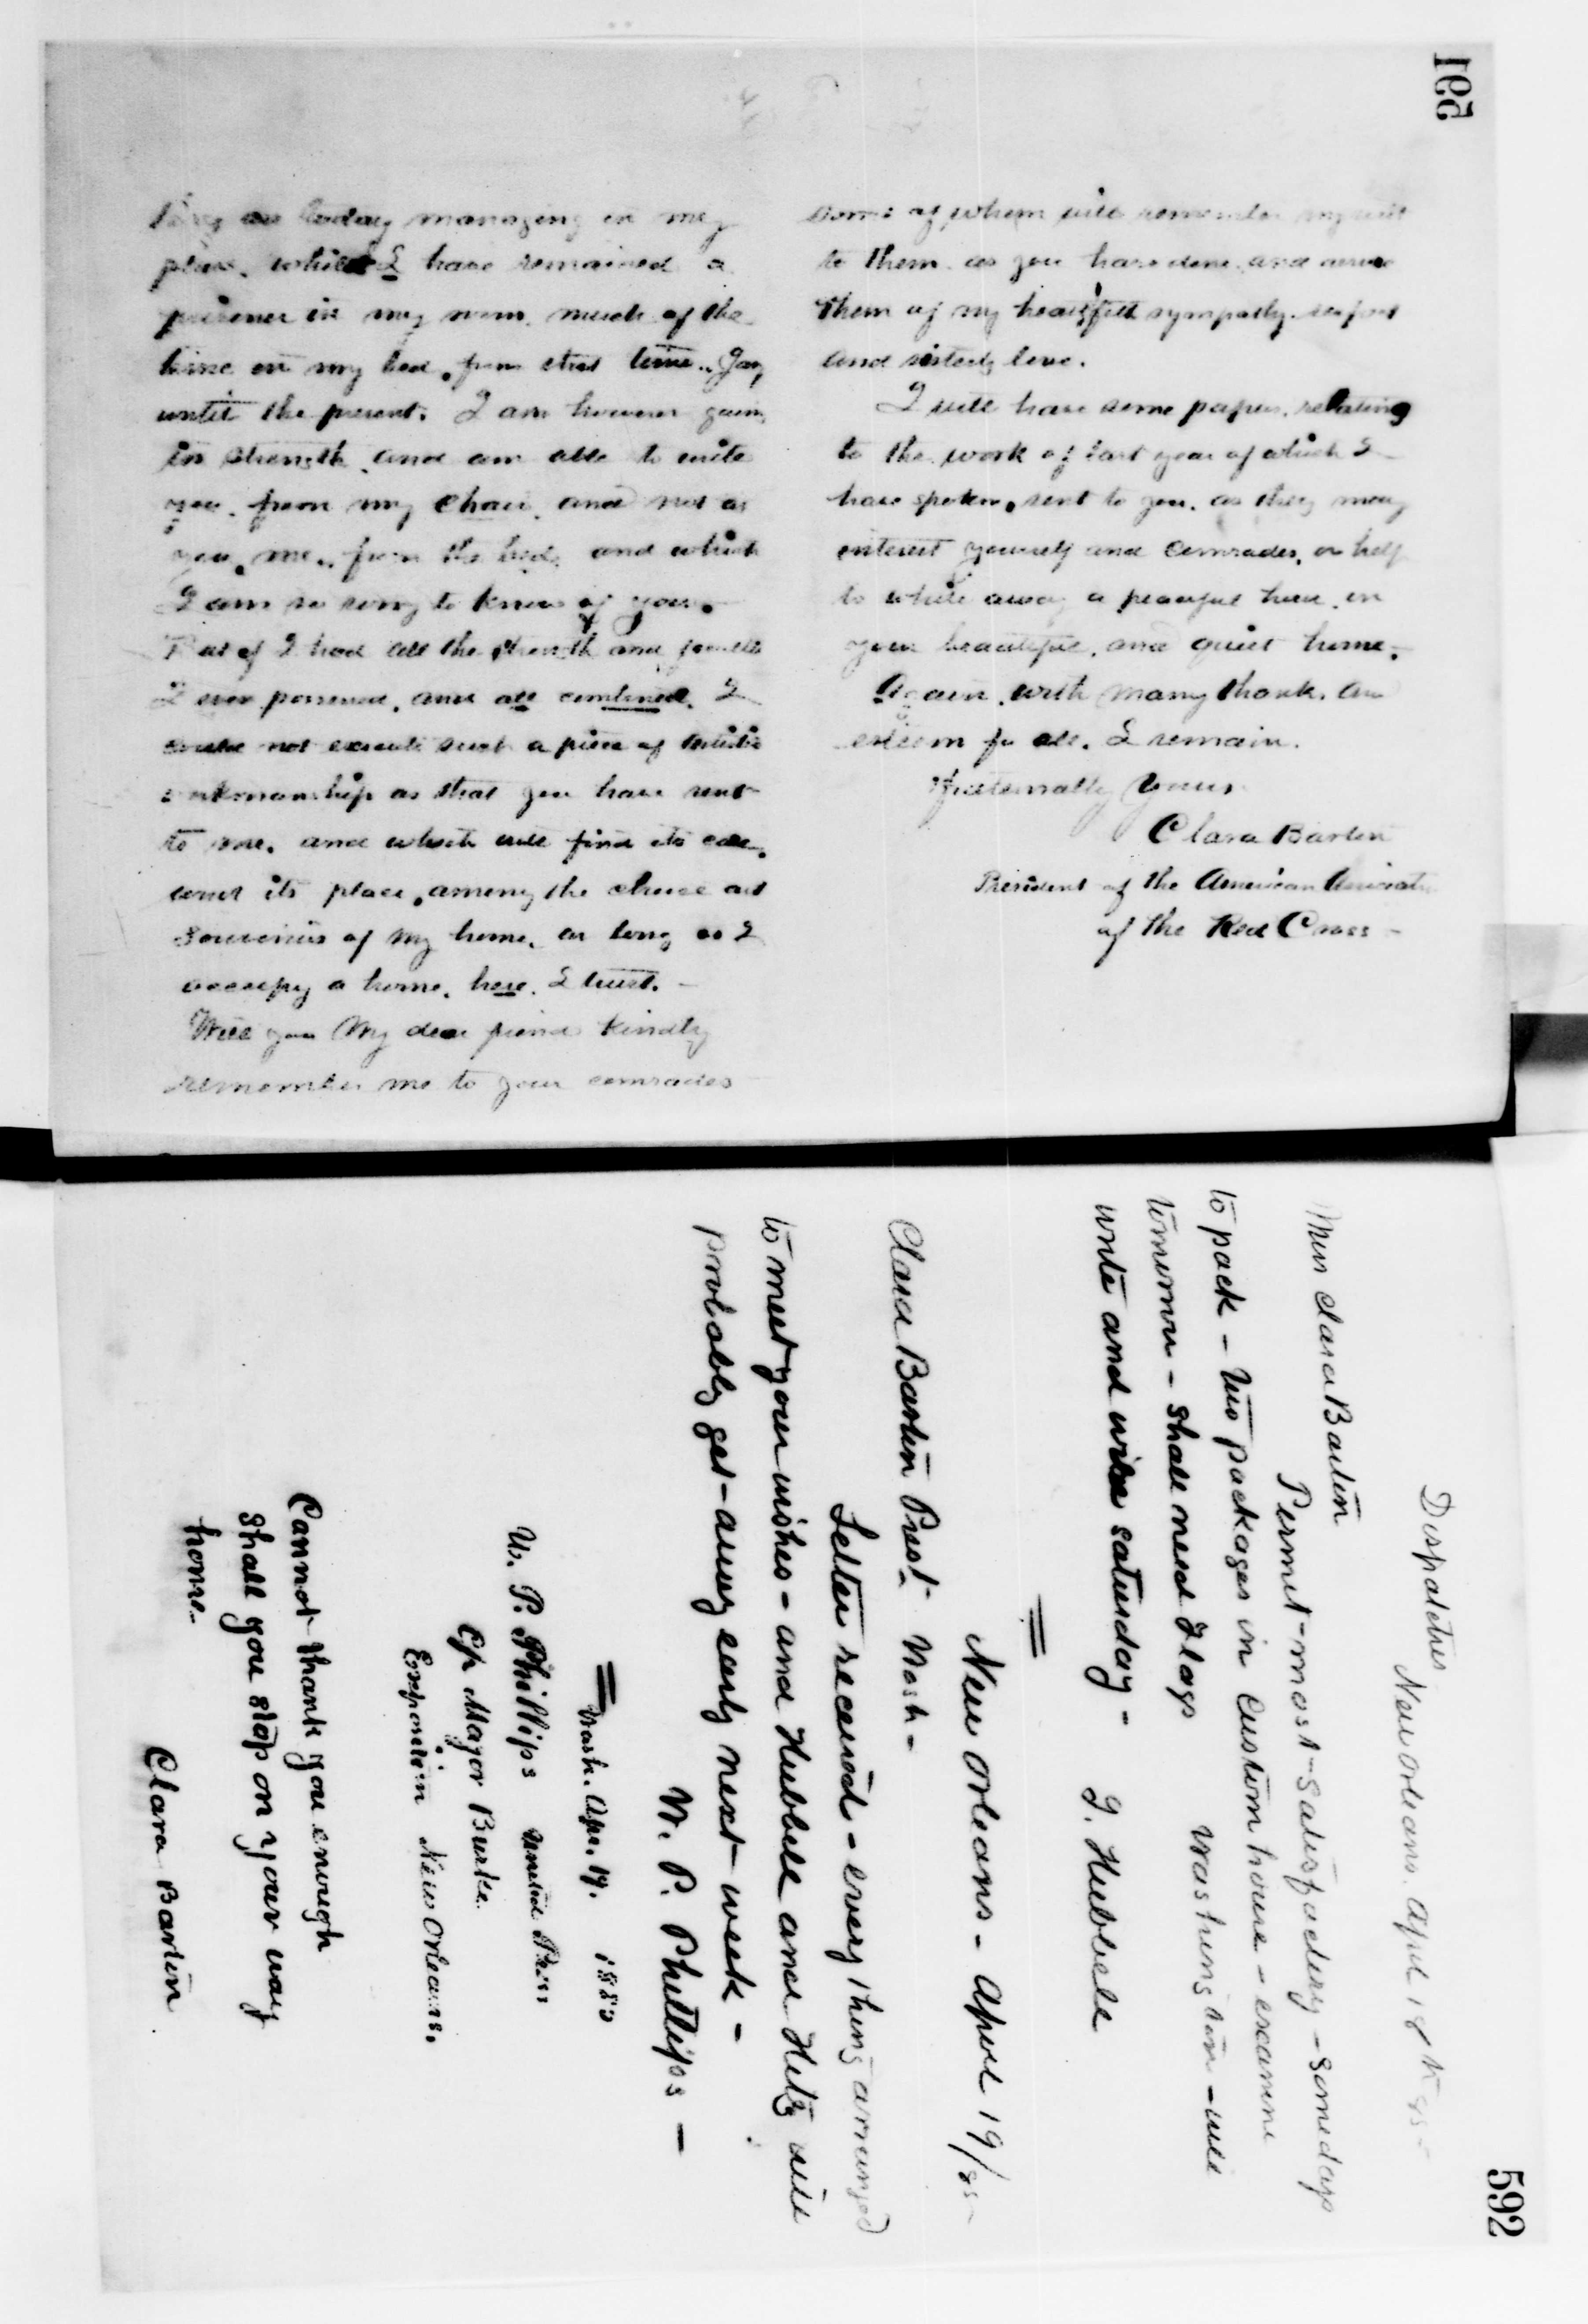 591
managing in my
place, while I have remained a
prisoner in my room, much of the
time on my bed, from that time, Jan,
until the present. I am however gaining
in strength, and am able to write
you, from my chair, and not as
you, me, from the bed, and which
I am so sorry to know of you.
But if I had all the strength and
I ever possessed, and all combined, I
could not execute such a piece of artistic
workmanship as that you have sent
to me, and which will find its
and its place, among the choice art
Souvenirs of my home, as long as I
occupy a home, here, I trust. -
Will you My dear friend kindly
remember me to your comrades
some of whom will remember my visit
to them, as you have done, and assure
them of my heartfelt sympathy, respect
and sisterly love.
I will have some papers, relating
to the work of last year of which I
have spoken, sent to you, as they may
interest yourself and comrades, or help
to while away a peaceful hour, in
your beautiful, and quiet home.
Again, with many thanks, and
esteem for all, I remain.
Fraternally Yours
Clara Barton
President of the American Association
of the Red Cross -
592
Dispatches
New Orleans. April 18th 85 -
Miss Clara Barton
Permit - most - satisfactory - some days
to pack - two packages in Custom house - examine
tomorrow - shall need Flags Washington - will
write and wire saturday - G. Hubbell
New Orleans - April 19/85 -
Clara Barton Prest - Wash -
Letter received - every thing arranged
to meet your wishes - and Hubbell and Hitz will
probably get - away early next week -
W. P. Phillips -
Wash. Apr. 19. 1885
W. P. Phillips United Press
C/o Major Burke.
Exposition New Orleans.
Cannot thank you enough
Shall you stop on your way
home -
Clara Barton